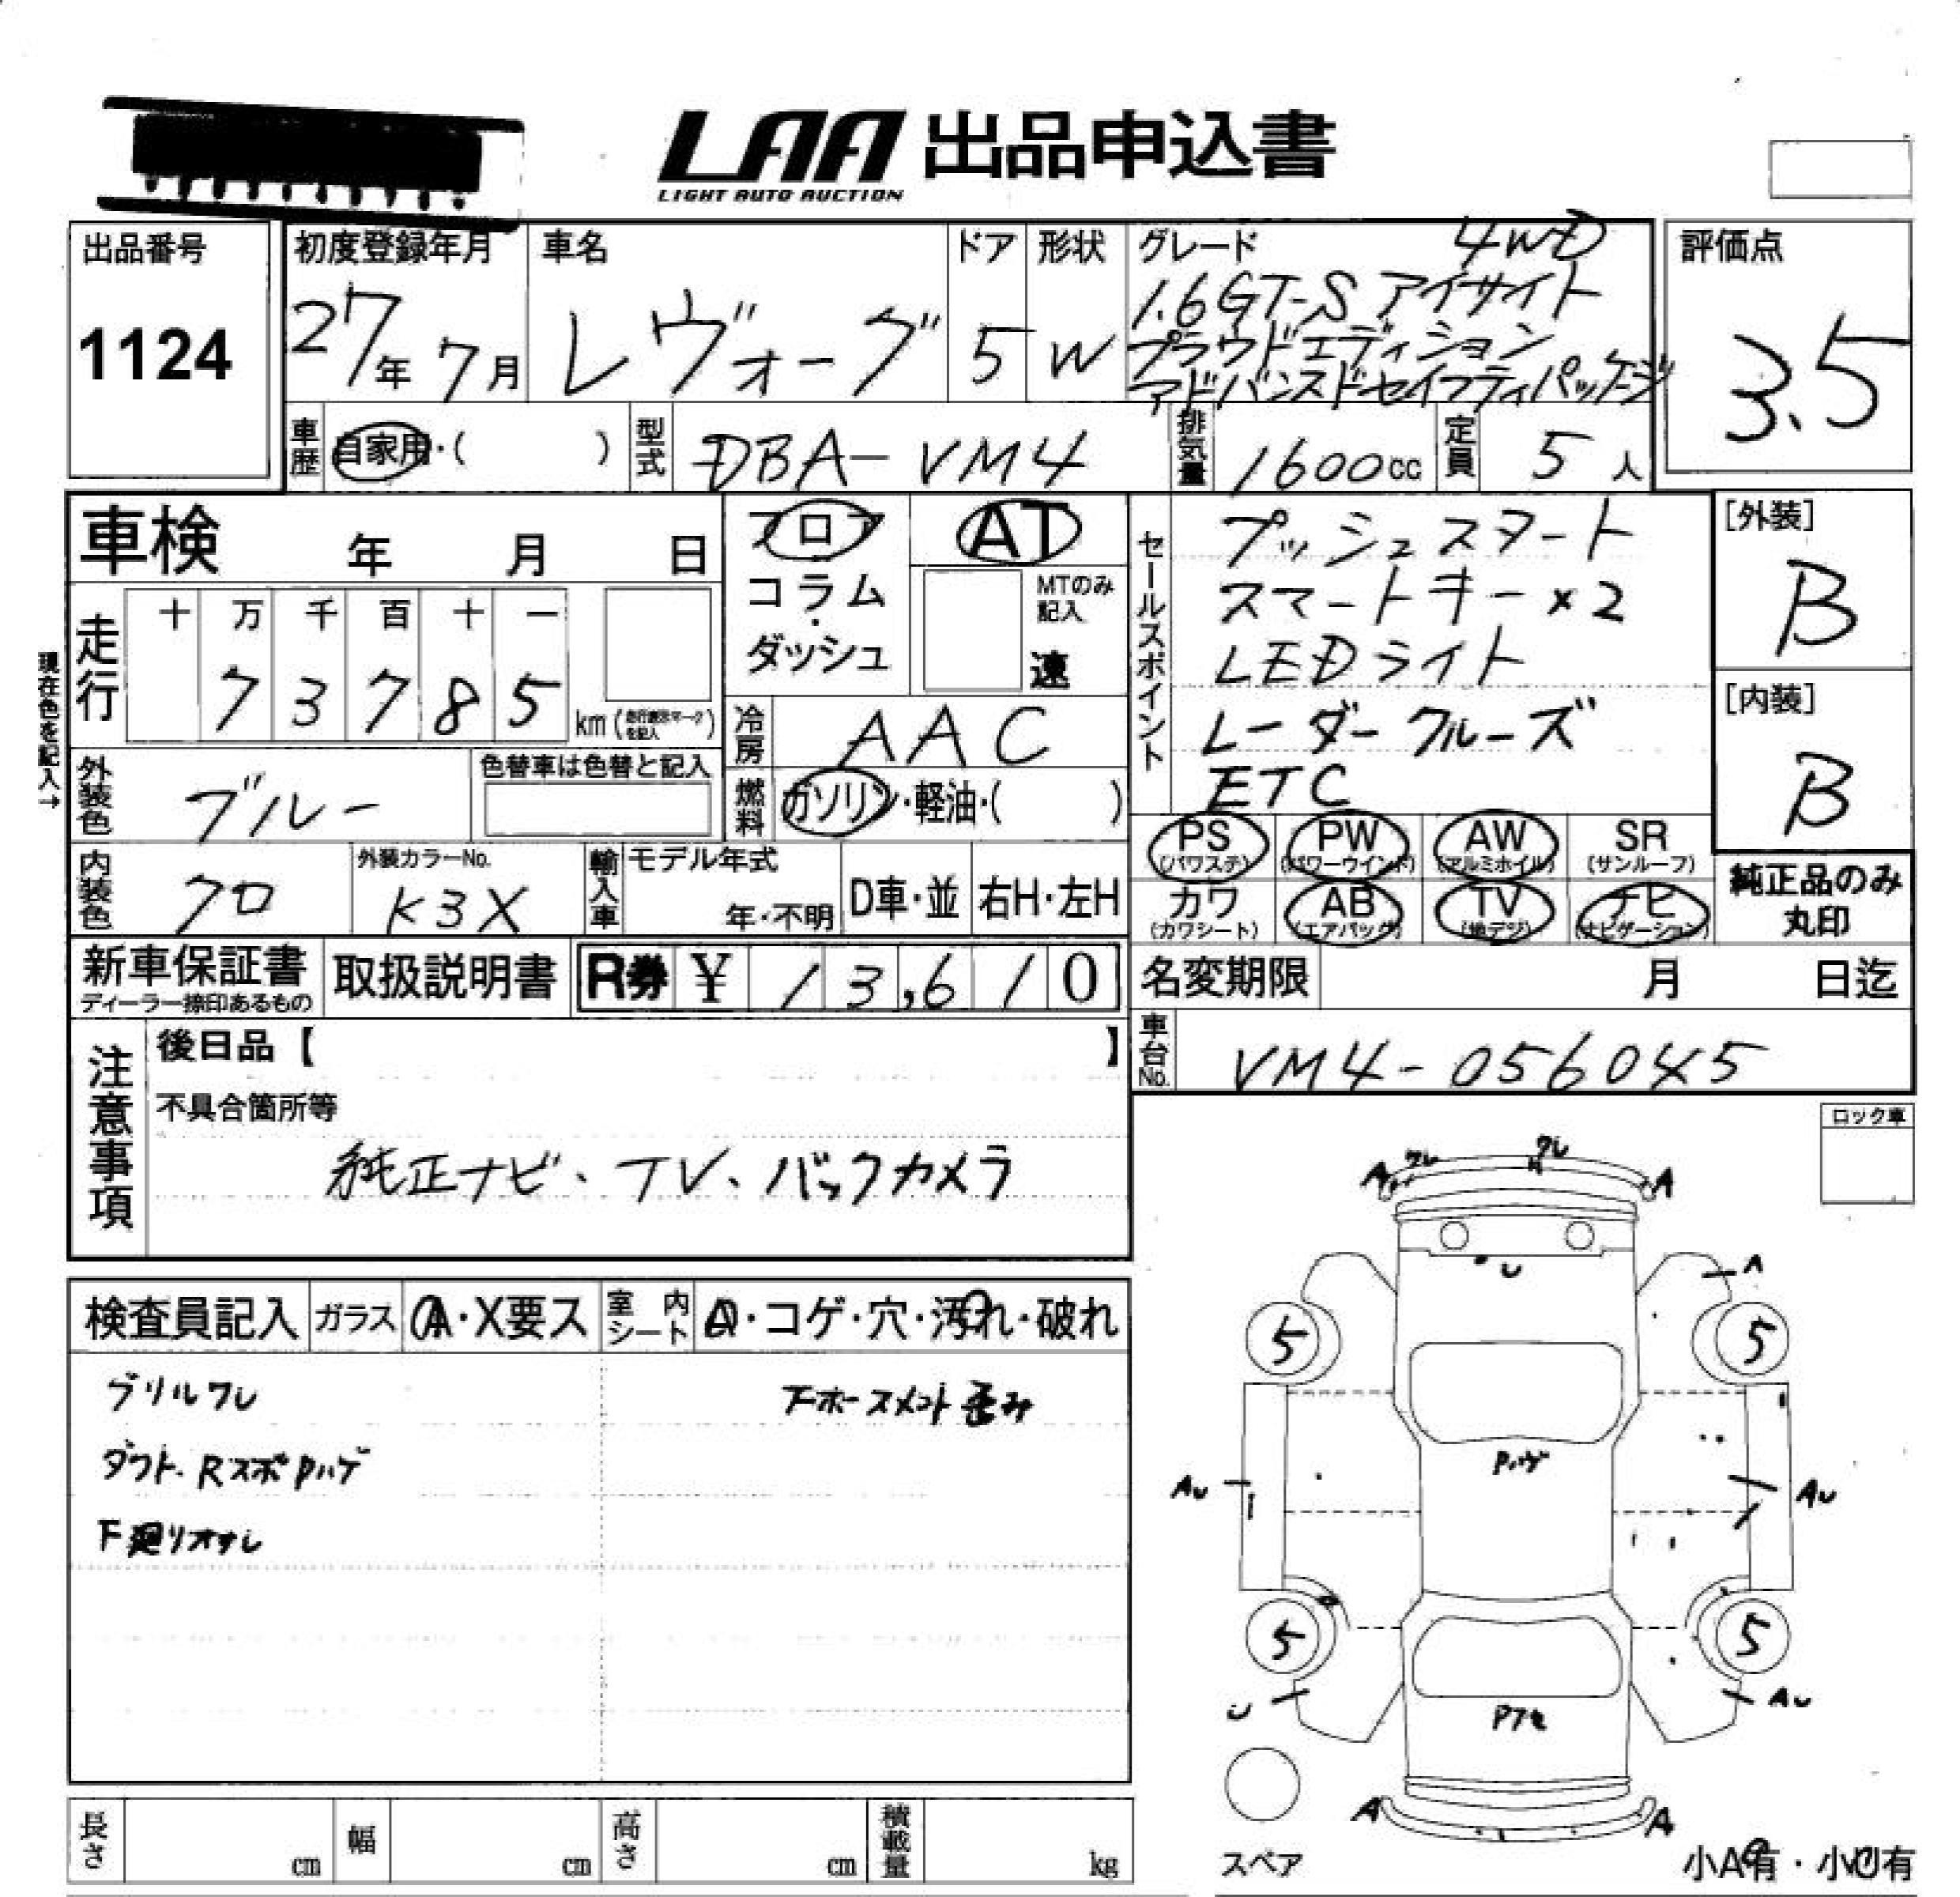 LAA 出品申込書
LIGHT AUTO AUCTION
出品番号
1124
初度登録年月
27年 7月
車名
レヴォーグ
ドア
5
形状
W
グレード 4WD
1.6GT-S アイサイト
プラウドエディション
アドバンスドセイフティパッケージ
評価点
3.5
車歴 自家用・( )
型式 DBA-VM4
排気量 1600cc
定員 5人
車検 年 月 日
フロア
コラム
・
ダッシュ
AT
MTのみ
記入
速
セールスポイント
プッシュスタート
スマートキー×2
LEDライト
レーダークルーズ
ETC
[外装]
B
[内装]
B
現在色を記入→
走行
十 万 千 百 十 一
7 3 7 8 5
km(走行表示マークを記入)
冷房 AAC
外装色 ブルー
色替車は色替と記入
燃料 ガソリン・軽油・( )
PS (パワステ)
PW (パワーウインド)
AW (アルミホイル)
SR (サンルーフ)
カワ (カワシート)
AB (エアバッグ)
TV (地デジ)
ナビ (ナビゲーション)
純正品のみ
丸印
内装色 クロ
外装カラーNo.
K3X
輸入車
モデル年式
年・不明
D車・並
右H・左H
新車保証書
ディーラー捺印あるもの
取扱説明書
R券 ¥ 13,610
名変期限 月 日迄
車台No. VM4-056045
注意事項
後日品【 】
不具合箇所等
純正ナビ、TV、バックカメラ
ロック車
検査員記入
ガラス A・X要ス
室内シート ・コゲ・穴・汚れ・破れ
グリルワレ
Fホースメント歪み
ダクト、RスポPハゲ
F廻りオサレ
A ワレ ワレ A
U
A
5 5
Pハゲ
AU AU
5 5
U AU
Pアセ
A A
スペア
小A有・小U有
長さ cm
幅 cm
高さ cm
積載量 kg